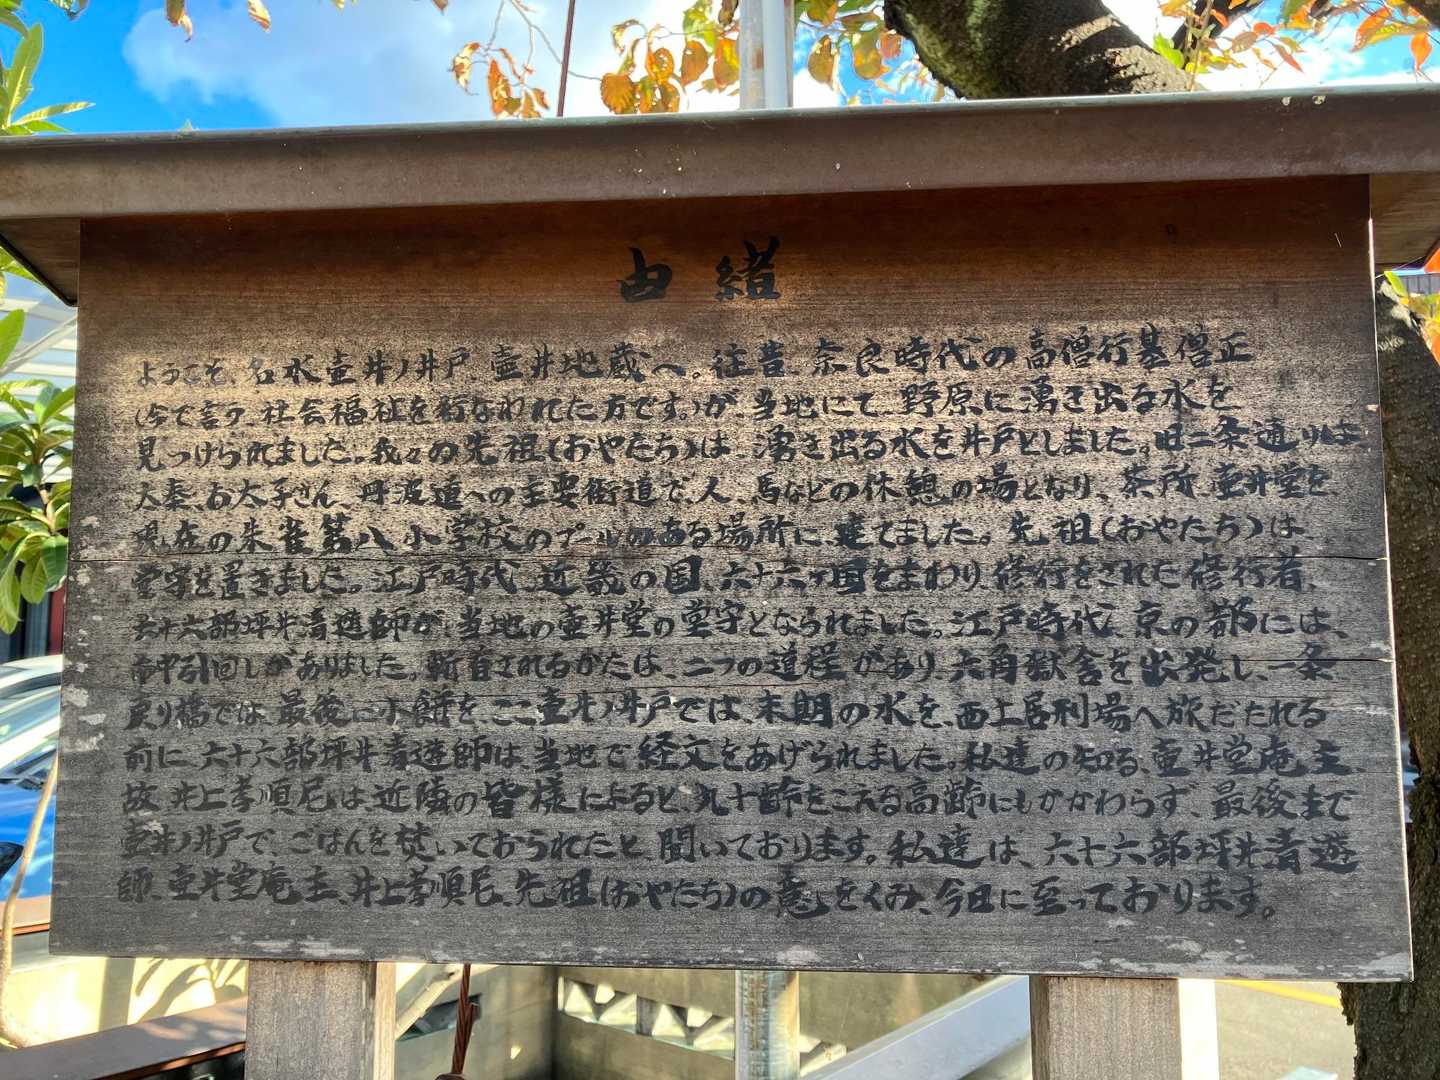 由緒
ようこそ、名水壷井ノ井戸、壷井地蔵へ。往昔、奈良時代の高僧行基僧正
(今で言う、社会福祉を行なわれた方です。)が、当地にて、野原に湧き出る水を
見つけられました。我々の先祖(おやたち)は、湧き出る水を井戸としました。旧二条通りは
太秦、お太子さん、丹波道への主要街道で、人、馬などの休憩の場となり、茶所、壷井堂を、
現在の朱雀第八小学校のプールのある場所に、建てました。先祖(おやたち)は、
堂守を置きました。江戸時代、近畿の国、六十六ヶ国をまわり、修行をされた修行者、
六十六部坪井清遊師が、当地の壷井堂の堂守となられました。江戸時代、京の都には、
市中引回しがありました。斬首されるかたは、二つの道程があり、六角獄舎を出発し、一条
戻り橋では、最後に小餅を、ここ壷井ノ井戸では、末期の水を、西土居刑場へ旅だたれる
前に、六十六部坪井清遊師は、当地で経文をあげられました。私達の知る、壷井堂庵主、
故、井上孝順尼は近隣の皆様によると、九十齢をこえる高齢にもかかわらず、最後まで
壷井ノ井戸で、ごはんを焚いておられたと、聞いております。私達は、六十六部坪井清遊
師、壷井堂庵主、井上孝順尼、先祖(おやたち)の意をくみ、今日に至っております。